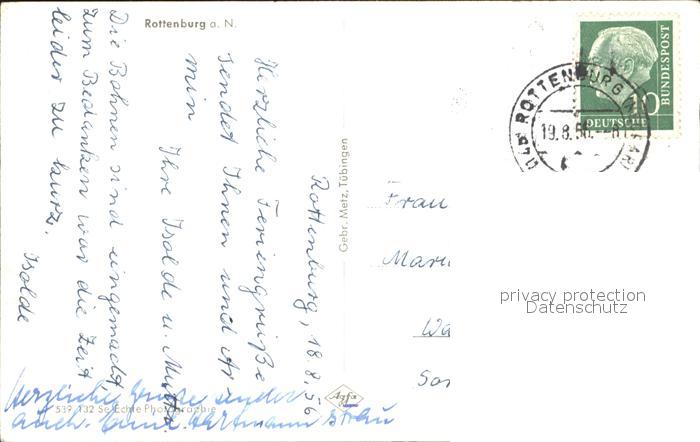 Rottenburg a. N.
Rottenburg, 18.8.56
Herzliche Feriengrüße
sendet Ihnen und Ar-
min
Ihre Isolde u. Mutter.
Die Bohnen sind eingemacht
zum Bedanken war die Zeit
leider zu kurz.
Isolde
Herzliche Grüsse sendet
auch Hartmann
539 132 Se Echte Photographie
Agfa
Gebr. Metz, Tübingen
DEUTSCHE
BUNDESPOST
10
ROTTENBURG
19.8.56
Frau
privacy protection
Datenschutz